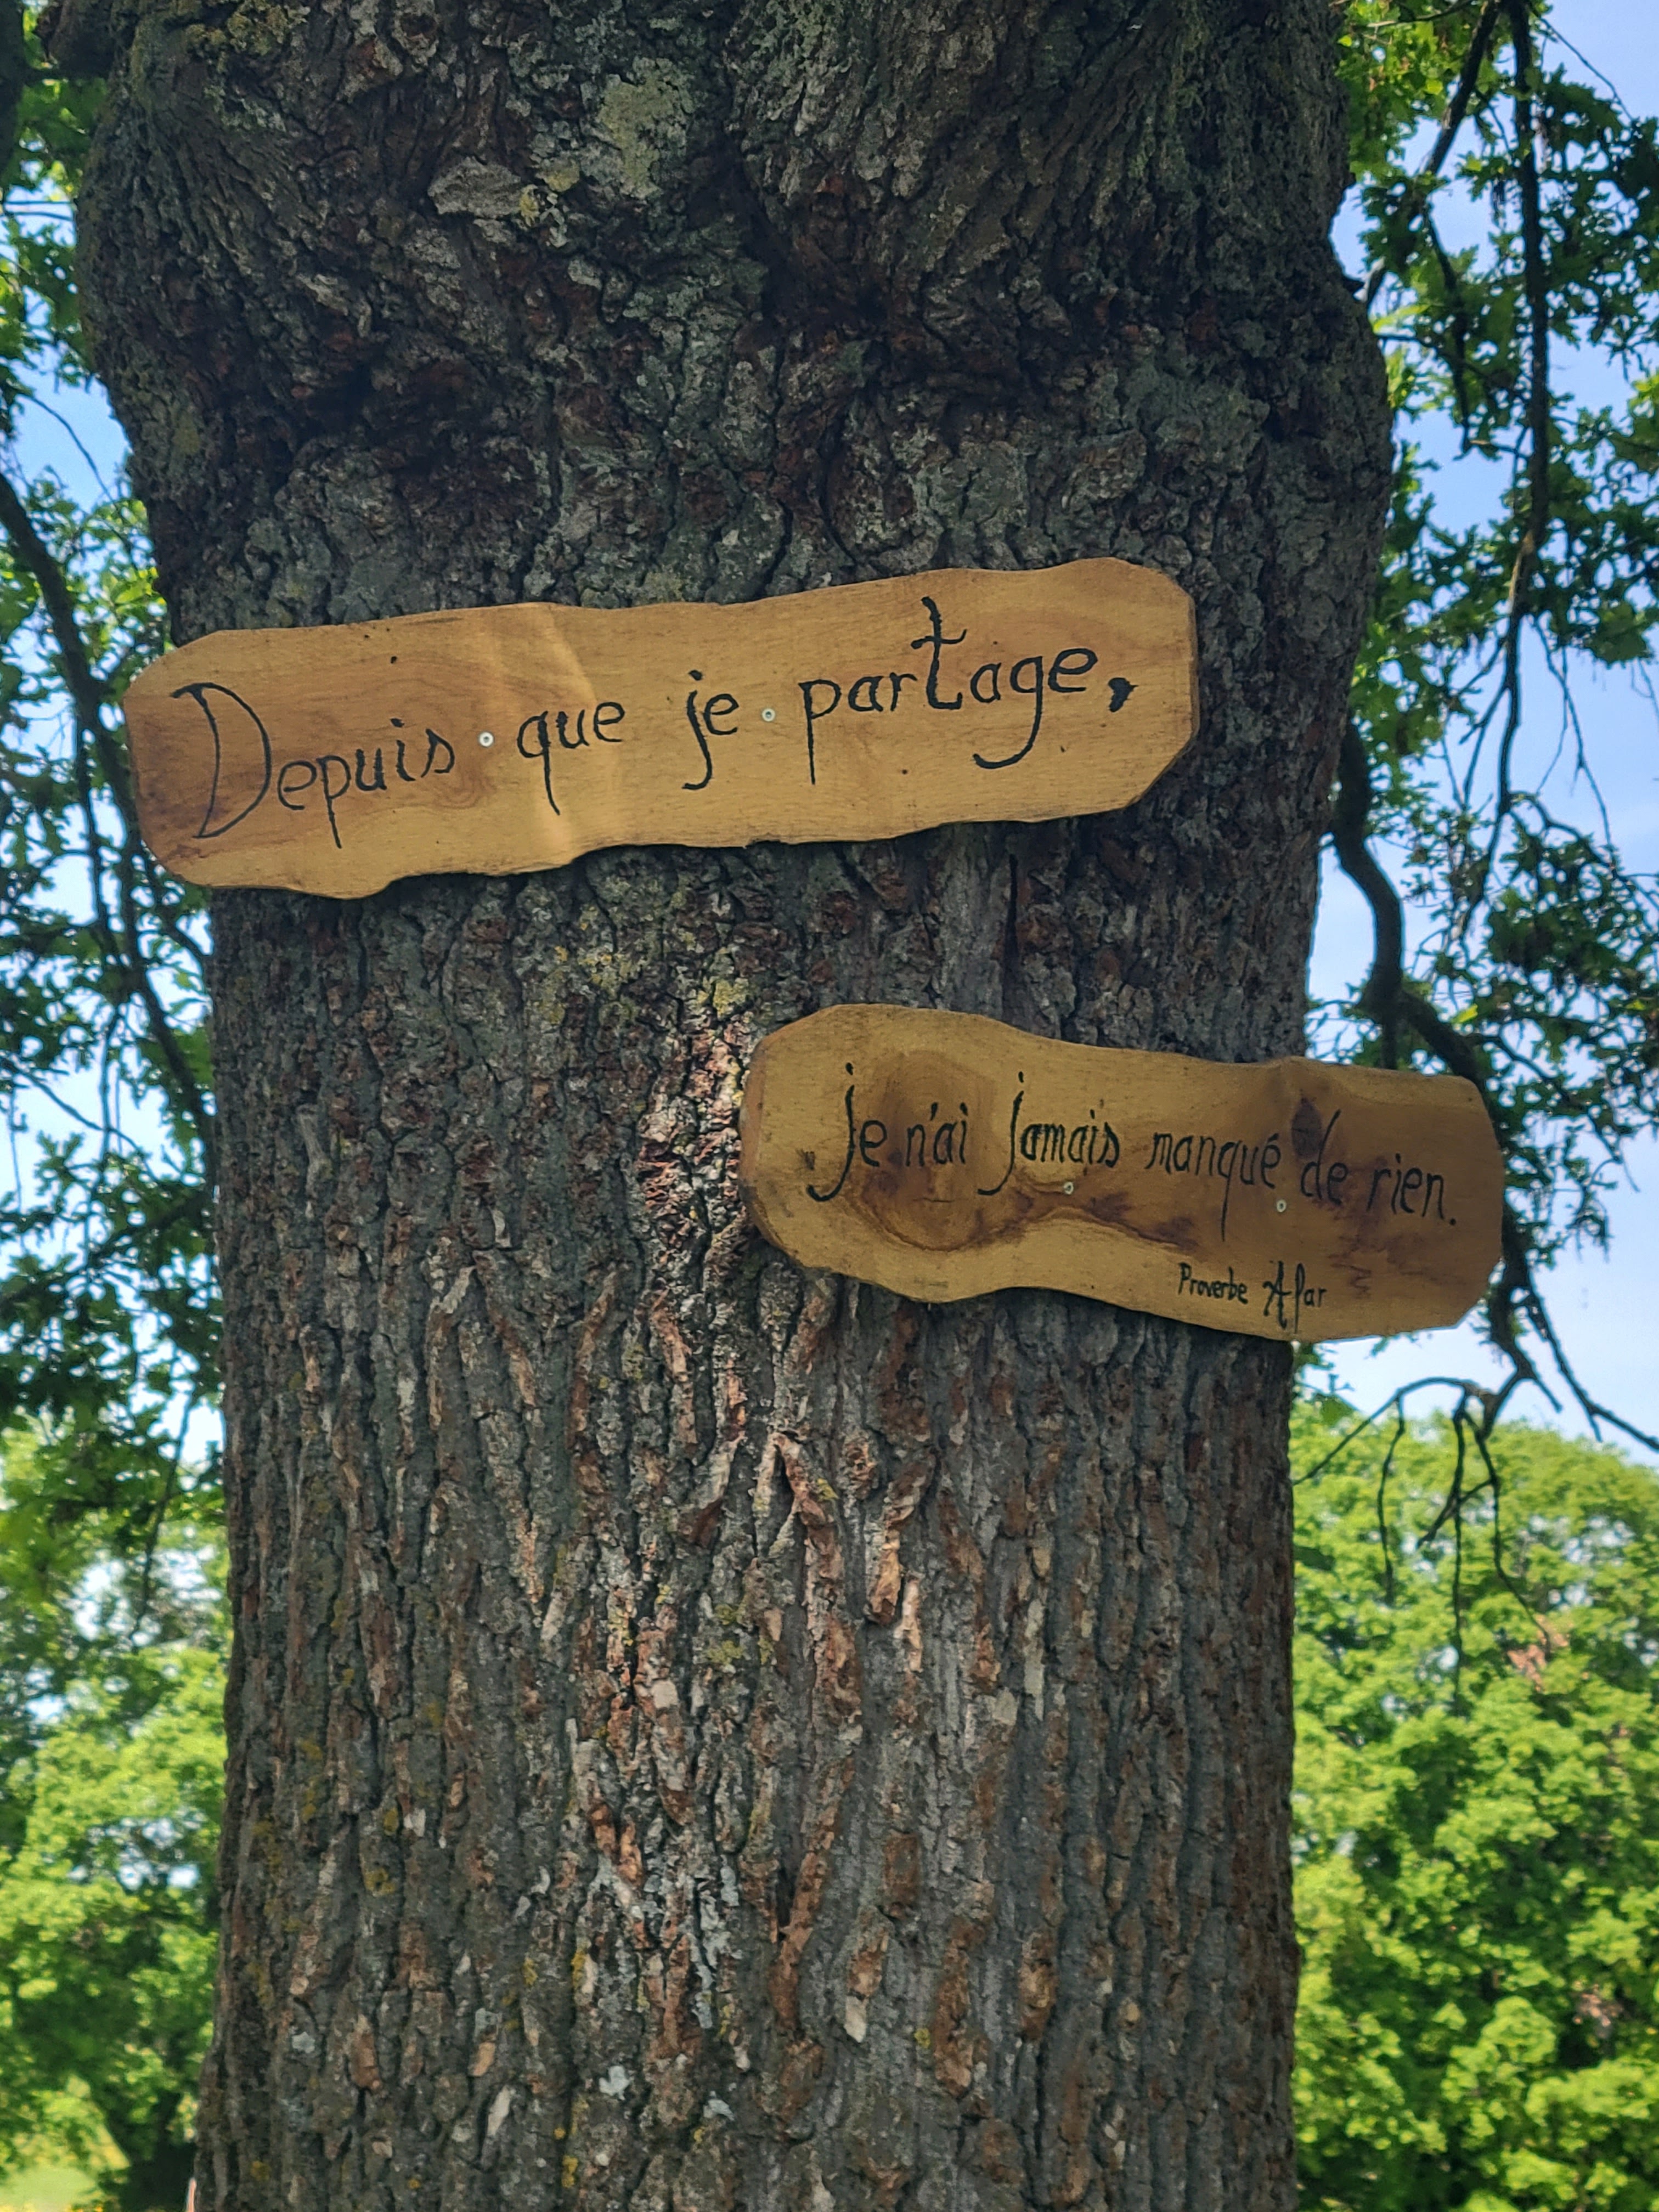 Depuis que je partage,
je n'ai jamais manqué de rien.
Proverbe Afar